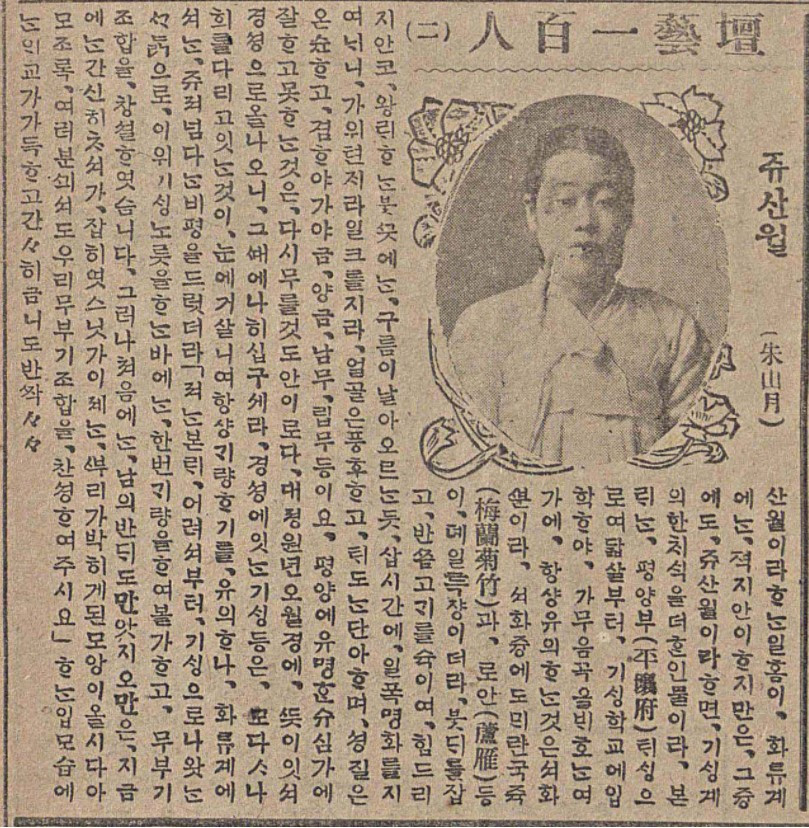 壇藝一百人 (二)
쥬산월
(朱山月)
산월이라ᄒᆞᄂᆞᆫ일홈이、화류계
에ᄂᆞᆫ、젹지안이ᄒᆞ지만은、그즁
에도、쥬산월이라ᄒᆞ면、기ᄉᆡᆼ계
의한치식을더ᄒᆞᆫ인물이라、본
ᄅᆡᄂᆞᆫ、평양부(平壤府)ᄐᆡᄉᆡᆼ으
로여닯살부터、기ᄉᆡᆼ학교에입
학ᄒᆞ야、가무음곡을ᄇᆡ호ᄂᆞᆫ여
가에、항샹유의ᄒᆞᄂᆞᆫ것은셔화
ᄲᅮᆫ이라、셔화즁에도ᄆᆡ란국쥭
(梅蘭菊竹)과、로안(蘆雁)등
이、뎨일특쟝이더라、붓ᄃᆡ를잡
고、반ᄶᅳᆷ고ᄀᆡ를슉이여、힘드리
지안코、왕ᄅᆡᄒᆞᄂᆞᆫ붓ᄭᅳᆺ에ᄂᆞᆫ、구름이날아오르ᄂᆞᆫ듯、삽시간에、일폭명화를지
여ᄂᆡ니、가위텬ᄌᆡ라일크를지라、얼골은풍후ᄒᆞ고、ᄐᆡ도ᄂᆞᆫ단아ᄒᆞ며、셩질은
온슌ᄒᆞ고、겸ᄒᆞ야가야금、양금、남무、립무등이요、평양에유명ᄒᆞᆫ슈심가에
잘ᄒᆞ고못ᄒᆞᄂᆞᆫ것은、다시무를것도안이로다、대졍원년오월경에、ᄯᅳᆺ이잇셔
경셩으로올나오니、그ᄯᅢ에나히십구셰라、경셩에잇ᄂᆞᆫ기ᄉᆡᆼ등은、모다ᄉᆞ나
희를다리고잇ᄂᆞᆫ것이、눈에거살니여항샹기량ᄒᆞ기를、유의ᄒᆞ나、화류계에
셔ᄂᆞᆫ、쥬져넘다ᄂᆞᆫ비평을드럿더라「져ᄂᆞᆫ본ᄅᆡ、어려셔부터、기ᄉᆡᆼ으로나왓ᄂᆞᆫ
ᄭᆞᄃᆞᆰ으로、이위기ᄉᆡᆼ노릇을ᄒᆞᄂᆞᆫ바에ᄂᆞᆫ、한번ᄀᆡ량을ᄒᆞ여볼가ᄒᆞ고、무부기
조합을、창셜ᄒᆞ엿슴니다、그러나쳐음에ᄂᆞᆫ、남의반ᄃᆡ도만앗지오만은、지금
에ᄂᆞᆫ간신히ᄎᆞ셔가、잡히엿스닛가이졔ᄂᆞᆫ、ᄲᅮ리가박히게된모양이올시다아
모조록、여러분ᄭᅴ셔도우리무부기조합을、찬셩ᄒᆞ여주시요」ᄒᆞᄂᆞᆫ입모습에
ᄂᆞᆫᄋᆡ교가가득ᄒᆞ고간々히금니도반ᄶᅡᆨ々々